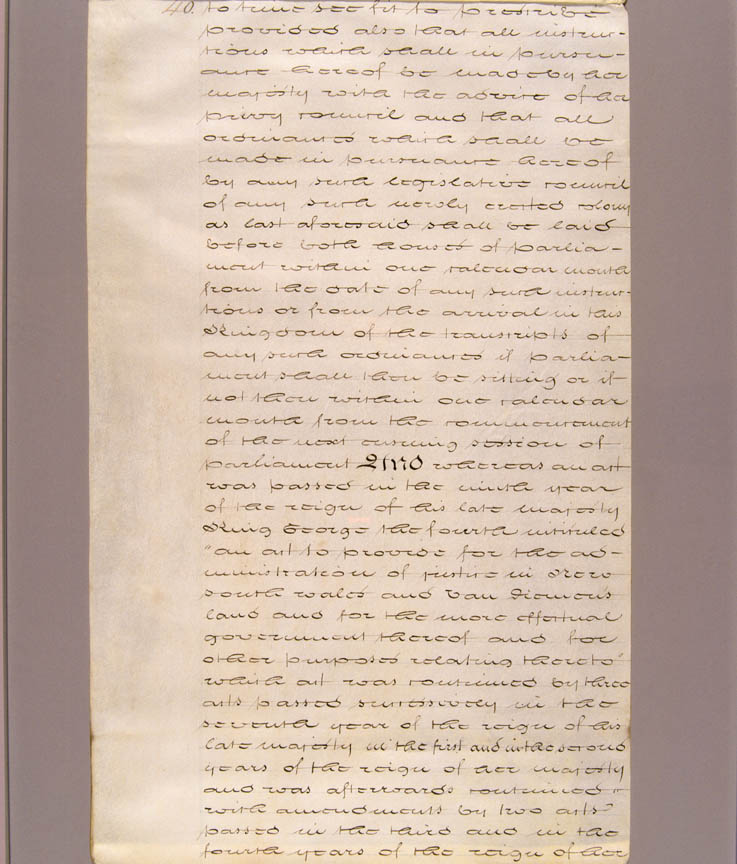 40. to time see fit to prescribe
provided also that all instruc-
tions which shall in pursu-
ance hereof be made by her
majesty with the advice of her
privy council and that all
ordinances which shall be
made in pursuance hereof
by any such legislative council
of any such newly erected colony
as last aforesaid shall be laid
before both houses of parlia-
ment within one calendar month
from the date of any such instruc-
tions or from the arrival in this
Kingdom of the transcripts of
any such ordinances if parlia-
ment shall then be sitting or if
not then within one calendar
month from the commencement
of the next ensuing session of
parliament And whereas an act
was passed in the ninth year
of the reign of his late majesty
King George the fourth intituled
"an act to provide for the ad-
ministration of justice in New
south wales and Van Diemens
land and for the more effectual
government thereof and for
other purposes relating thereto"
which act was continued by three
acts passed successively in the
seventh year of the reign of his
late majesty in the first and in the second
years of the reign of her majesty
and was afterwards continued
with amendments by two acts
passed in the third and in the
fourth years of the reign of her